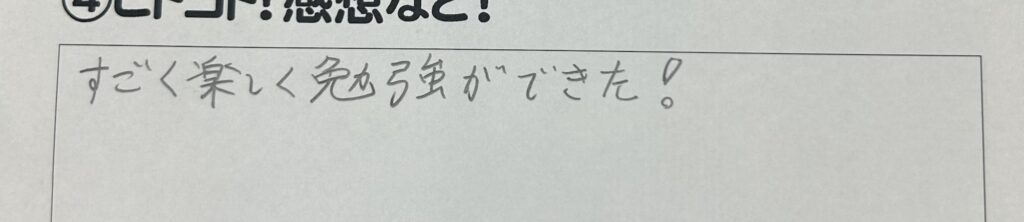 ④ヒトコト！感想など！
すごく楽しく勉強ができた！